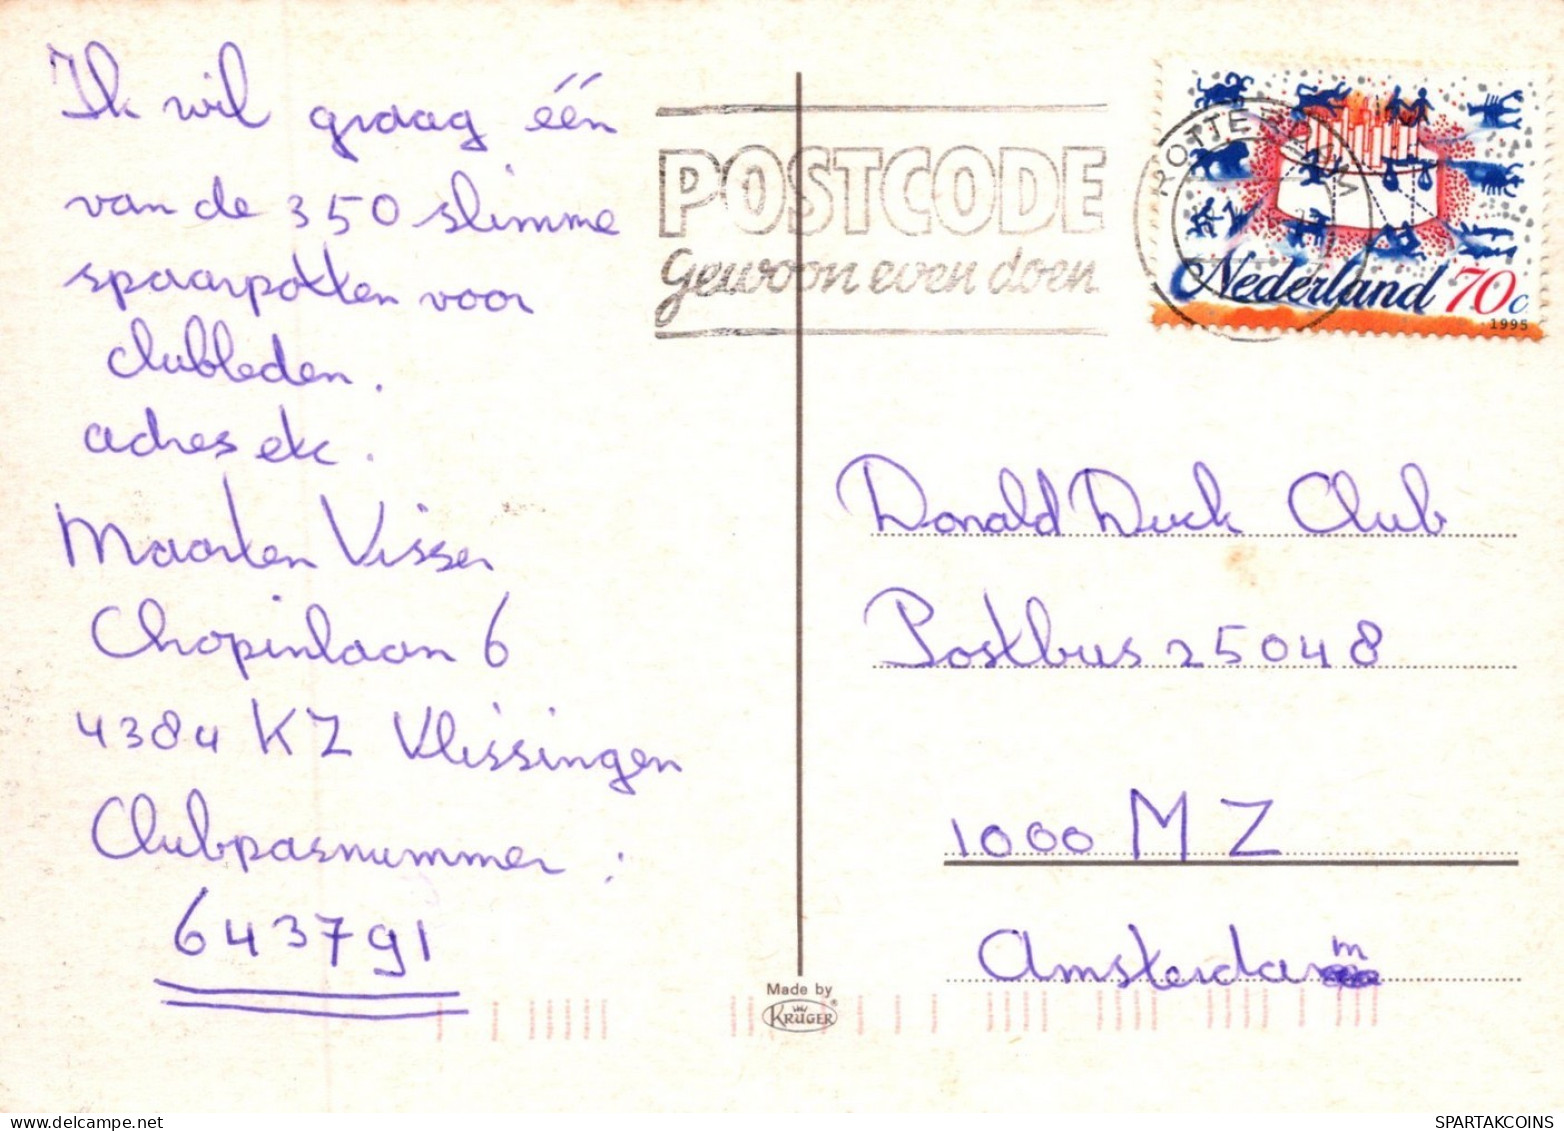 Ik wil graag één
van de 350 slimme
spaarpotten voor
clubleden.
adres etc.
Maarten Visser
Chopinlaan 6
4384 KZ Vlissingen
Clubpasnummer :
643791
POSTCODE
gewoon even doen
ROTTERDAM
Nederland 70c
1995
Donald Duck Club
Postbus 25048
1000 MZ
Amsterdam
Made by
KRÜGER®
SPARTAKCOINS